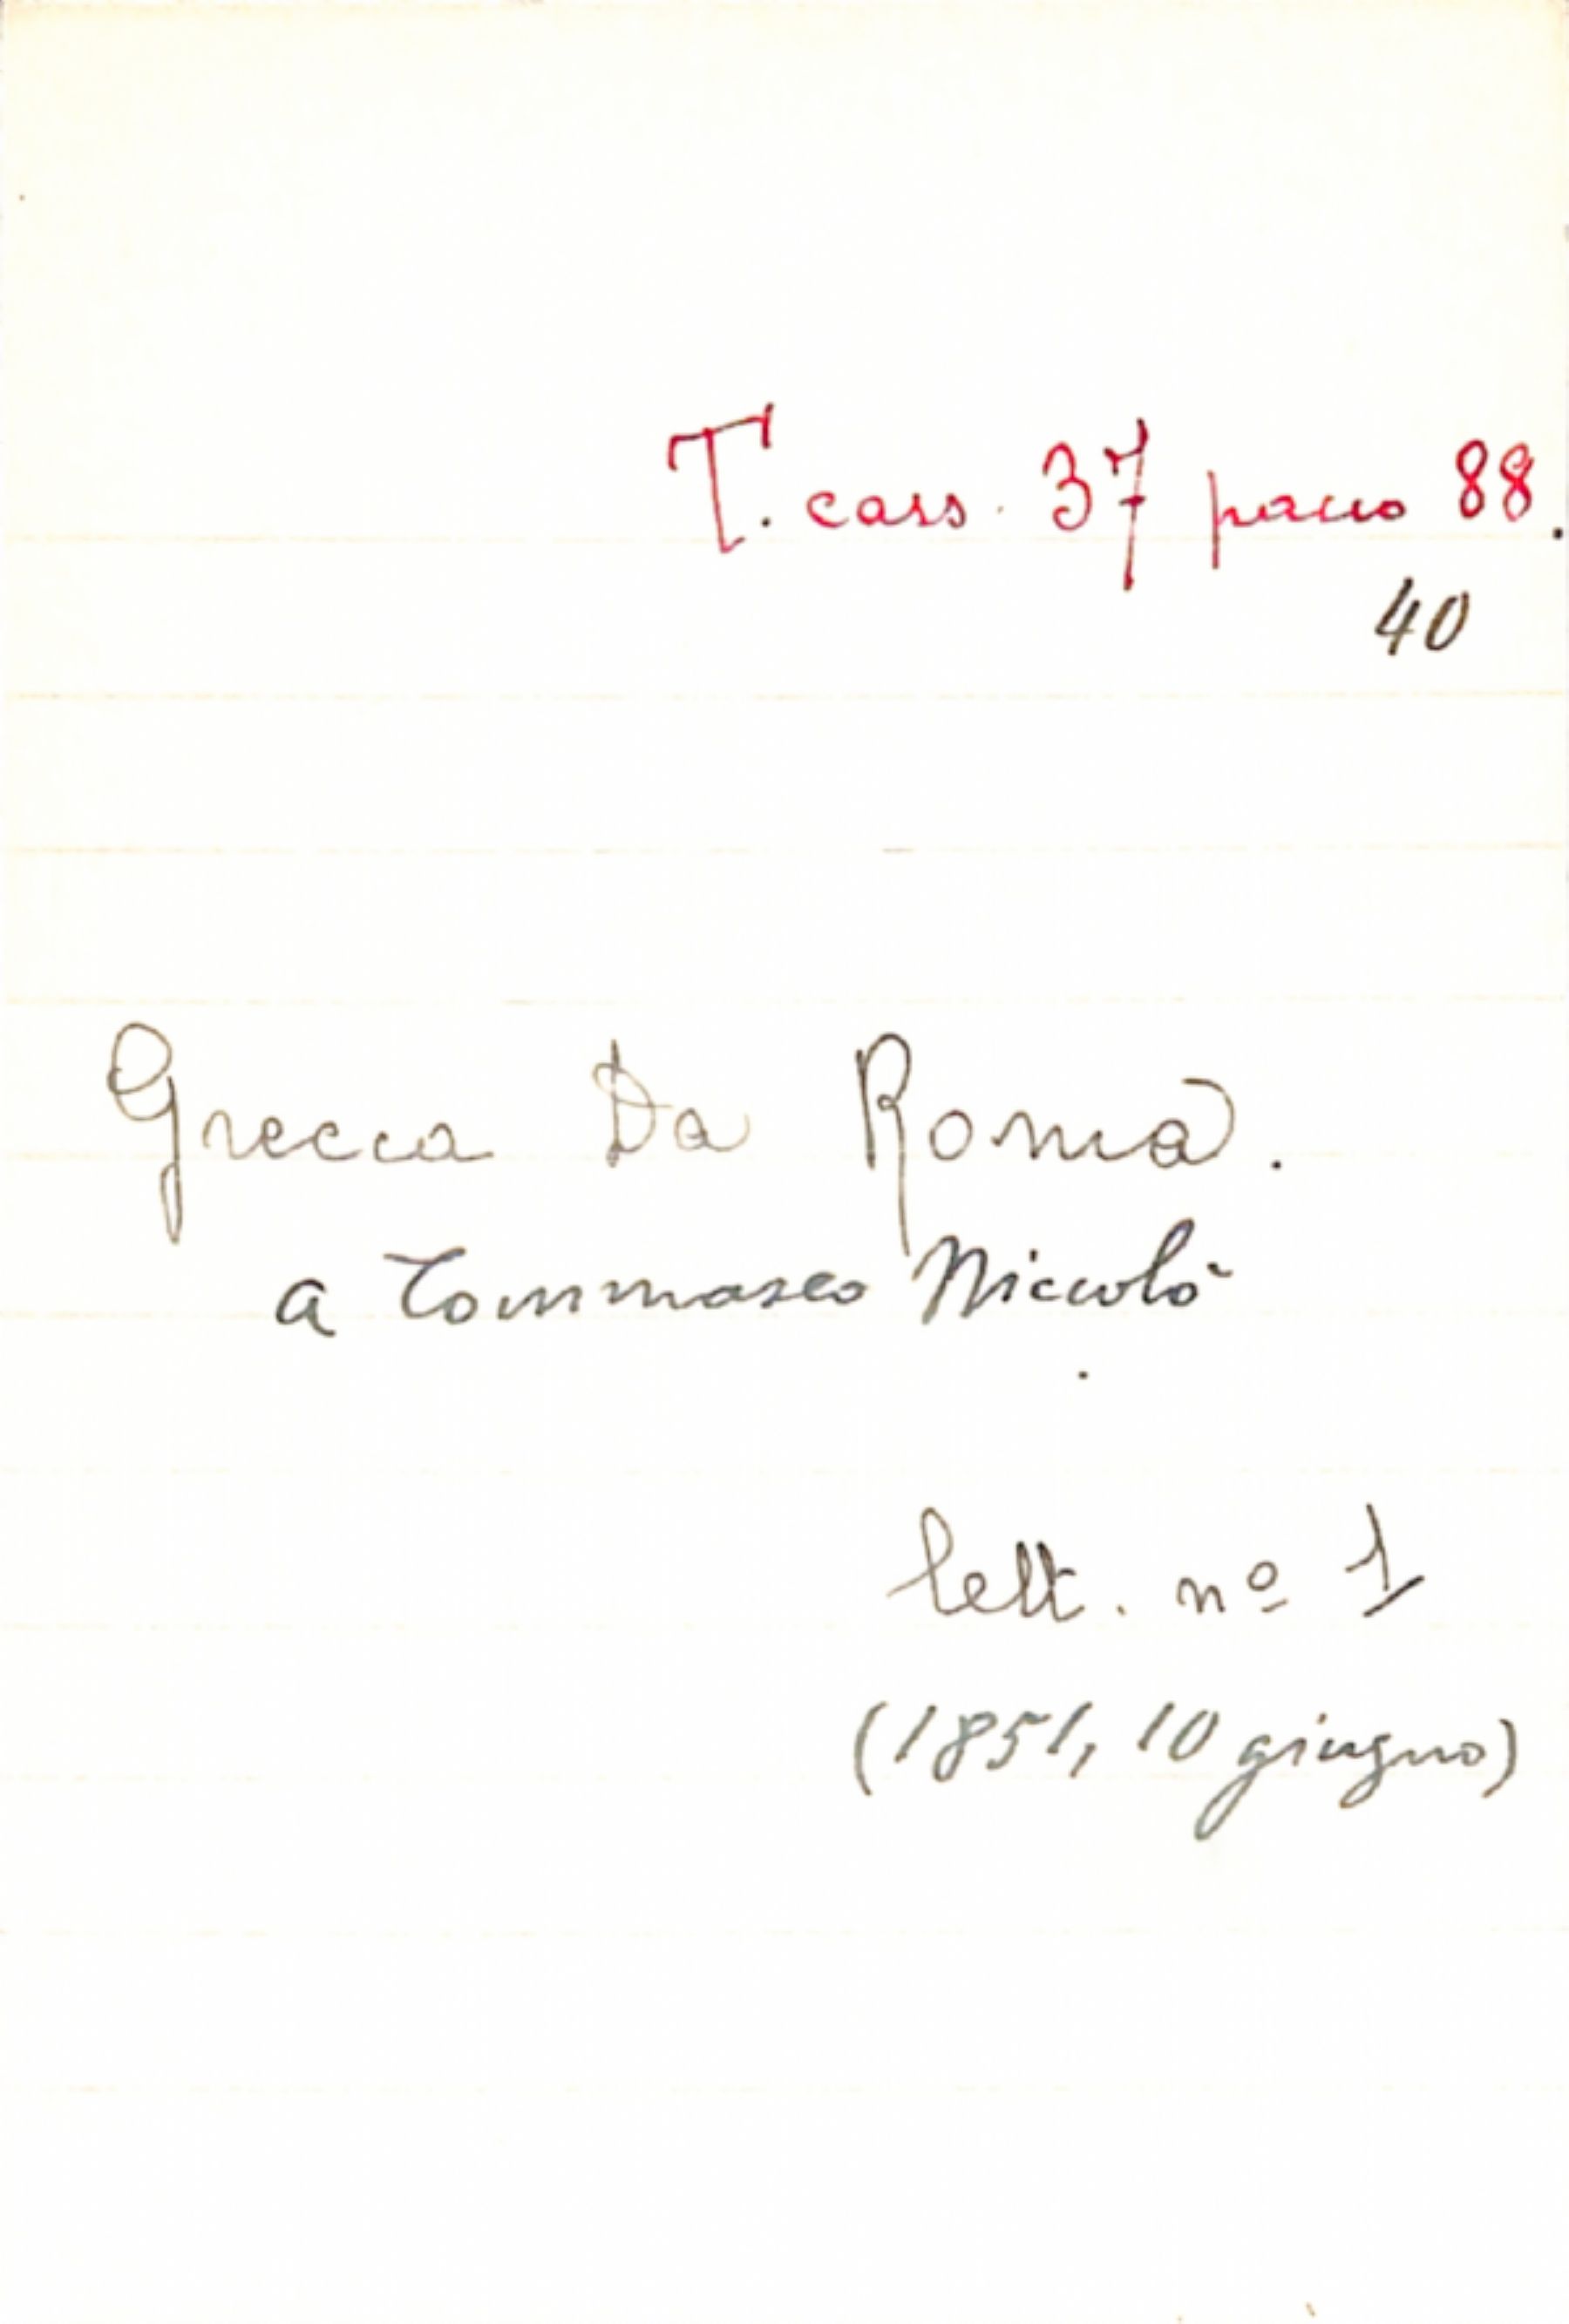 T. cass. 37 pacco 88.
40
Grecca Da Roma.
a Tommaseo Niccolò
lett. nº 1
(1851, 10 giugno)